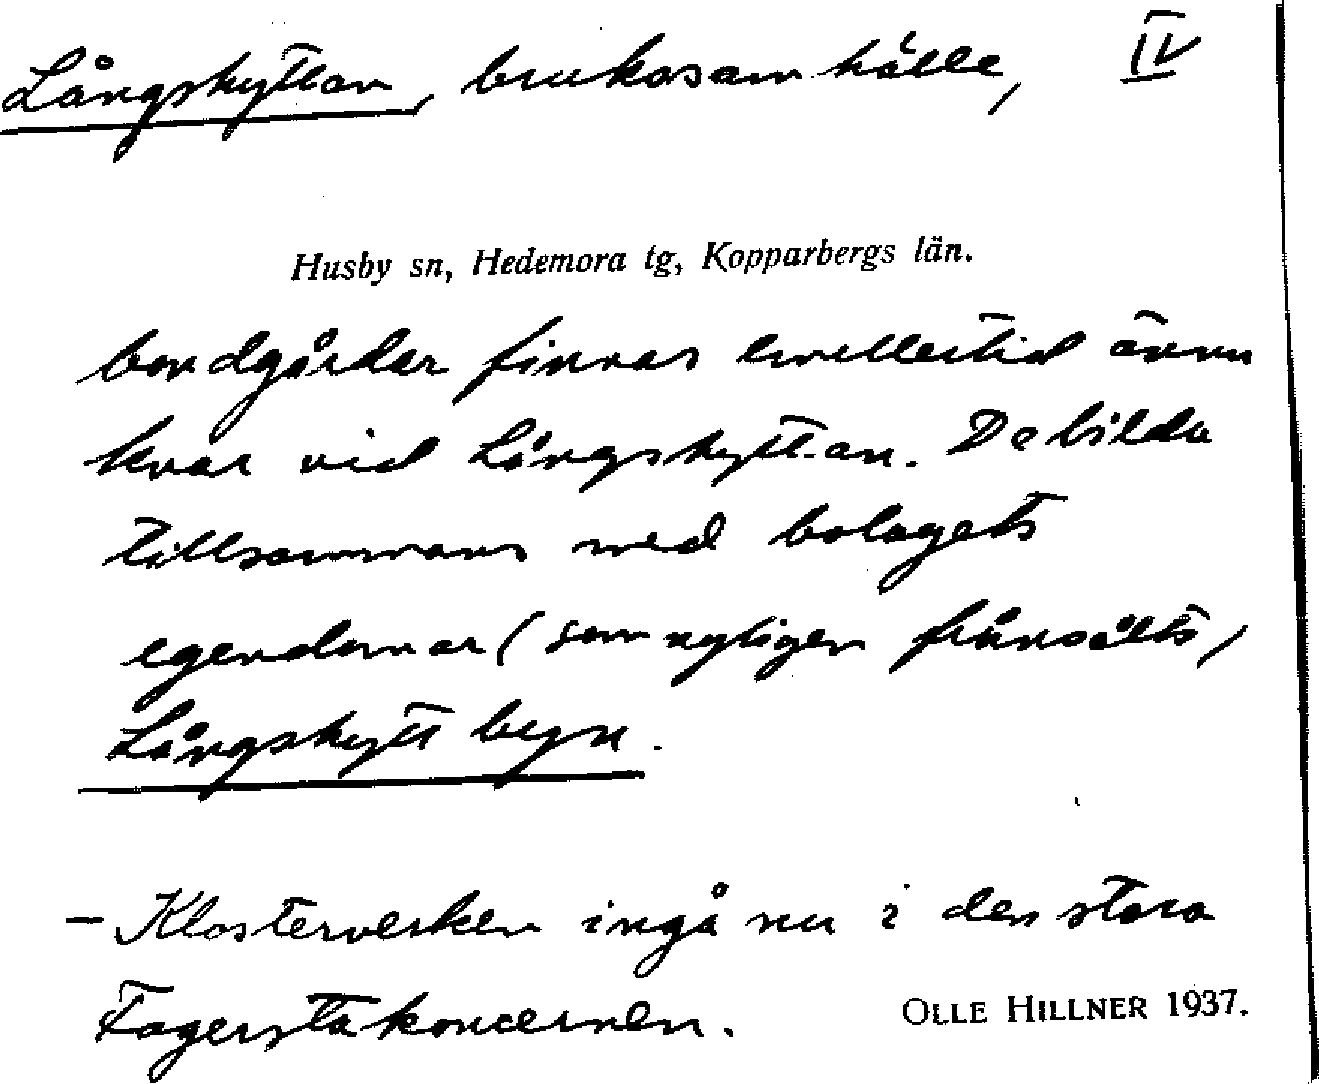 Långshyttan, brukssamhälle, IV
Husby sn, Hedemora tg, Kopparbergs län.
bondgårdar finnas emellertid ännu
kvar vid Långshyttan. De bilda
tillsammans med bolagets
egendomar (som nyligen frånsålts,
Långshytt byn.
– Klosterverken ingå nu i den stora
Fagerstakoncernen. OLLE HILLNER 1937.